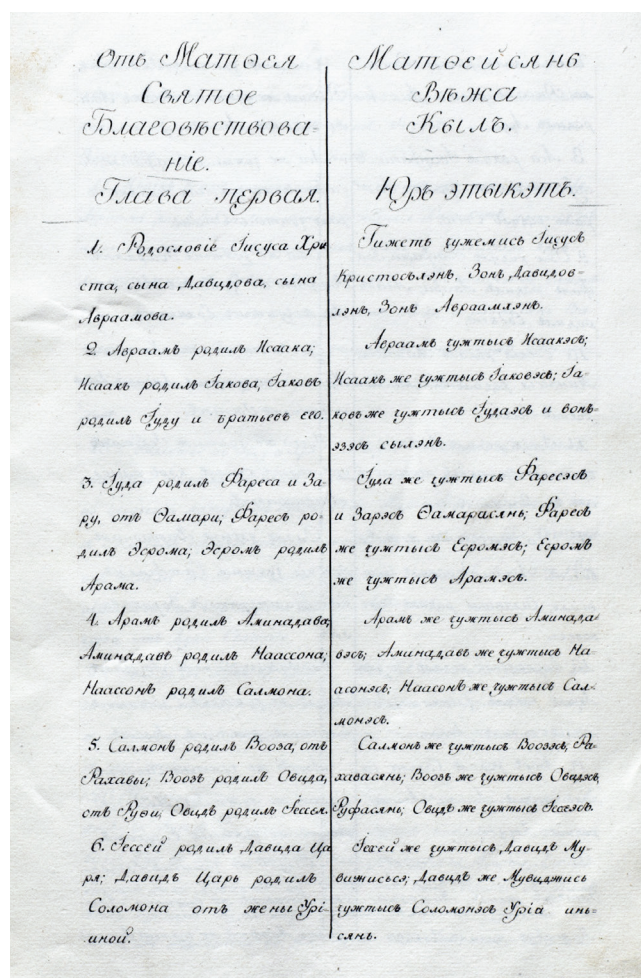 Отъ Матѳея
Святое
Благовѣствова-
ніе.
Глава первая.
1. Родословіе Іисуса Хри
ста, сына Давидова, сына
Авраамова.
2. Авраамъ родилъ Исаака;
Исаакъ родилъ Іакова; Іаковъ
родилъ Іуду и братьевъ его.
3. Іуда родилъ Фареса и За-
ру, отъ Ѳамари; Фаресъ ро-
дилъ Эсрома; Эсромъ родилъ
Арама.
4. Арамъ родилъ Аминадава;
Аминадавъ родилъ Наассона;
Наассонъ родилъ Салмона.
5. Салмонъ родилъ Вооза, отъ
Рахавы; Воозъ родилъ Овида,
отъ Руѳи; Овидъ родилъ Іессея.
6. Іессей родилъ Давида Ца
ря; Давидъ Царь родилъ
Соломона отъ жены Урі-
иной.
Матѳейсянь
Вѣжа
Кылъ.
Юръ этыкэтъ.
Гижетъ чужемись Іисусъ
Кристослэнъ, Зонъ Давидов-
лэнъ, Зонъ Авраамлэнъ.
Авраамъ чужтысъ Исаакэсъ;
Исаакъ же чужтысъ Іаковэсъ; Іа-
ковъ же чужтысъ Іудаэсъ и вонъ-
эзэсъ сылэнъ.
Іуда же чужтысъ Фаресэсъ
и Зарэсъ Ѳамарасянь; Фаресъ
же чужтысъ Есромэсъ; Есромъ
же чужтысъ Арамэсъ.
Арамъ же чужтысъ Аминада
вэсъ; Аминадавъ же чужтысъ На-
асонэсъ; Наасонъ же чужтысъ Сал-
монэсъ.
Салмонъ же чужтысъ Воозэсъ, Ра-
хавасянь; Воозъ же чужтысъ Овидэсъ,
Руфасянь; Овидъ же чужтысъ Іессеэсъ.
же чужтысъ Давидъ Му-
Давидъ же
чужтысъ Соломонэсъ Уріа инь-
сянь.